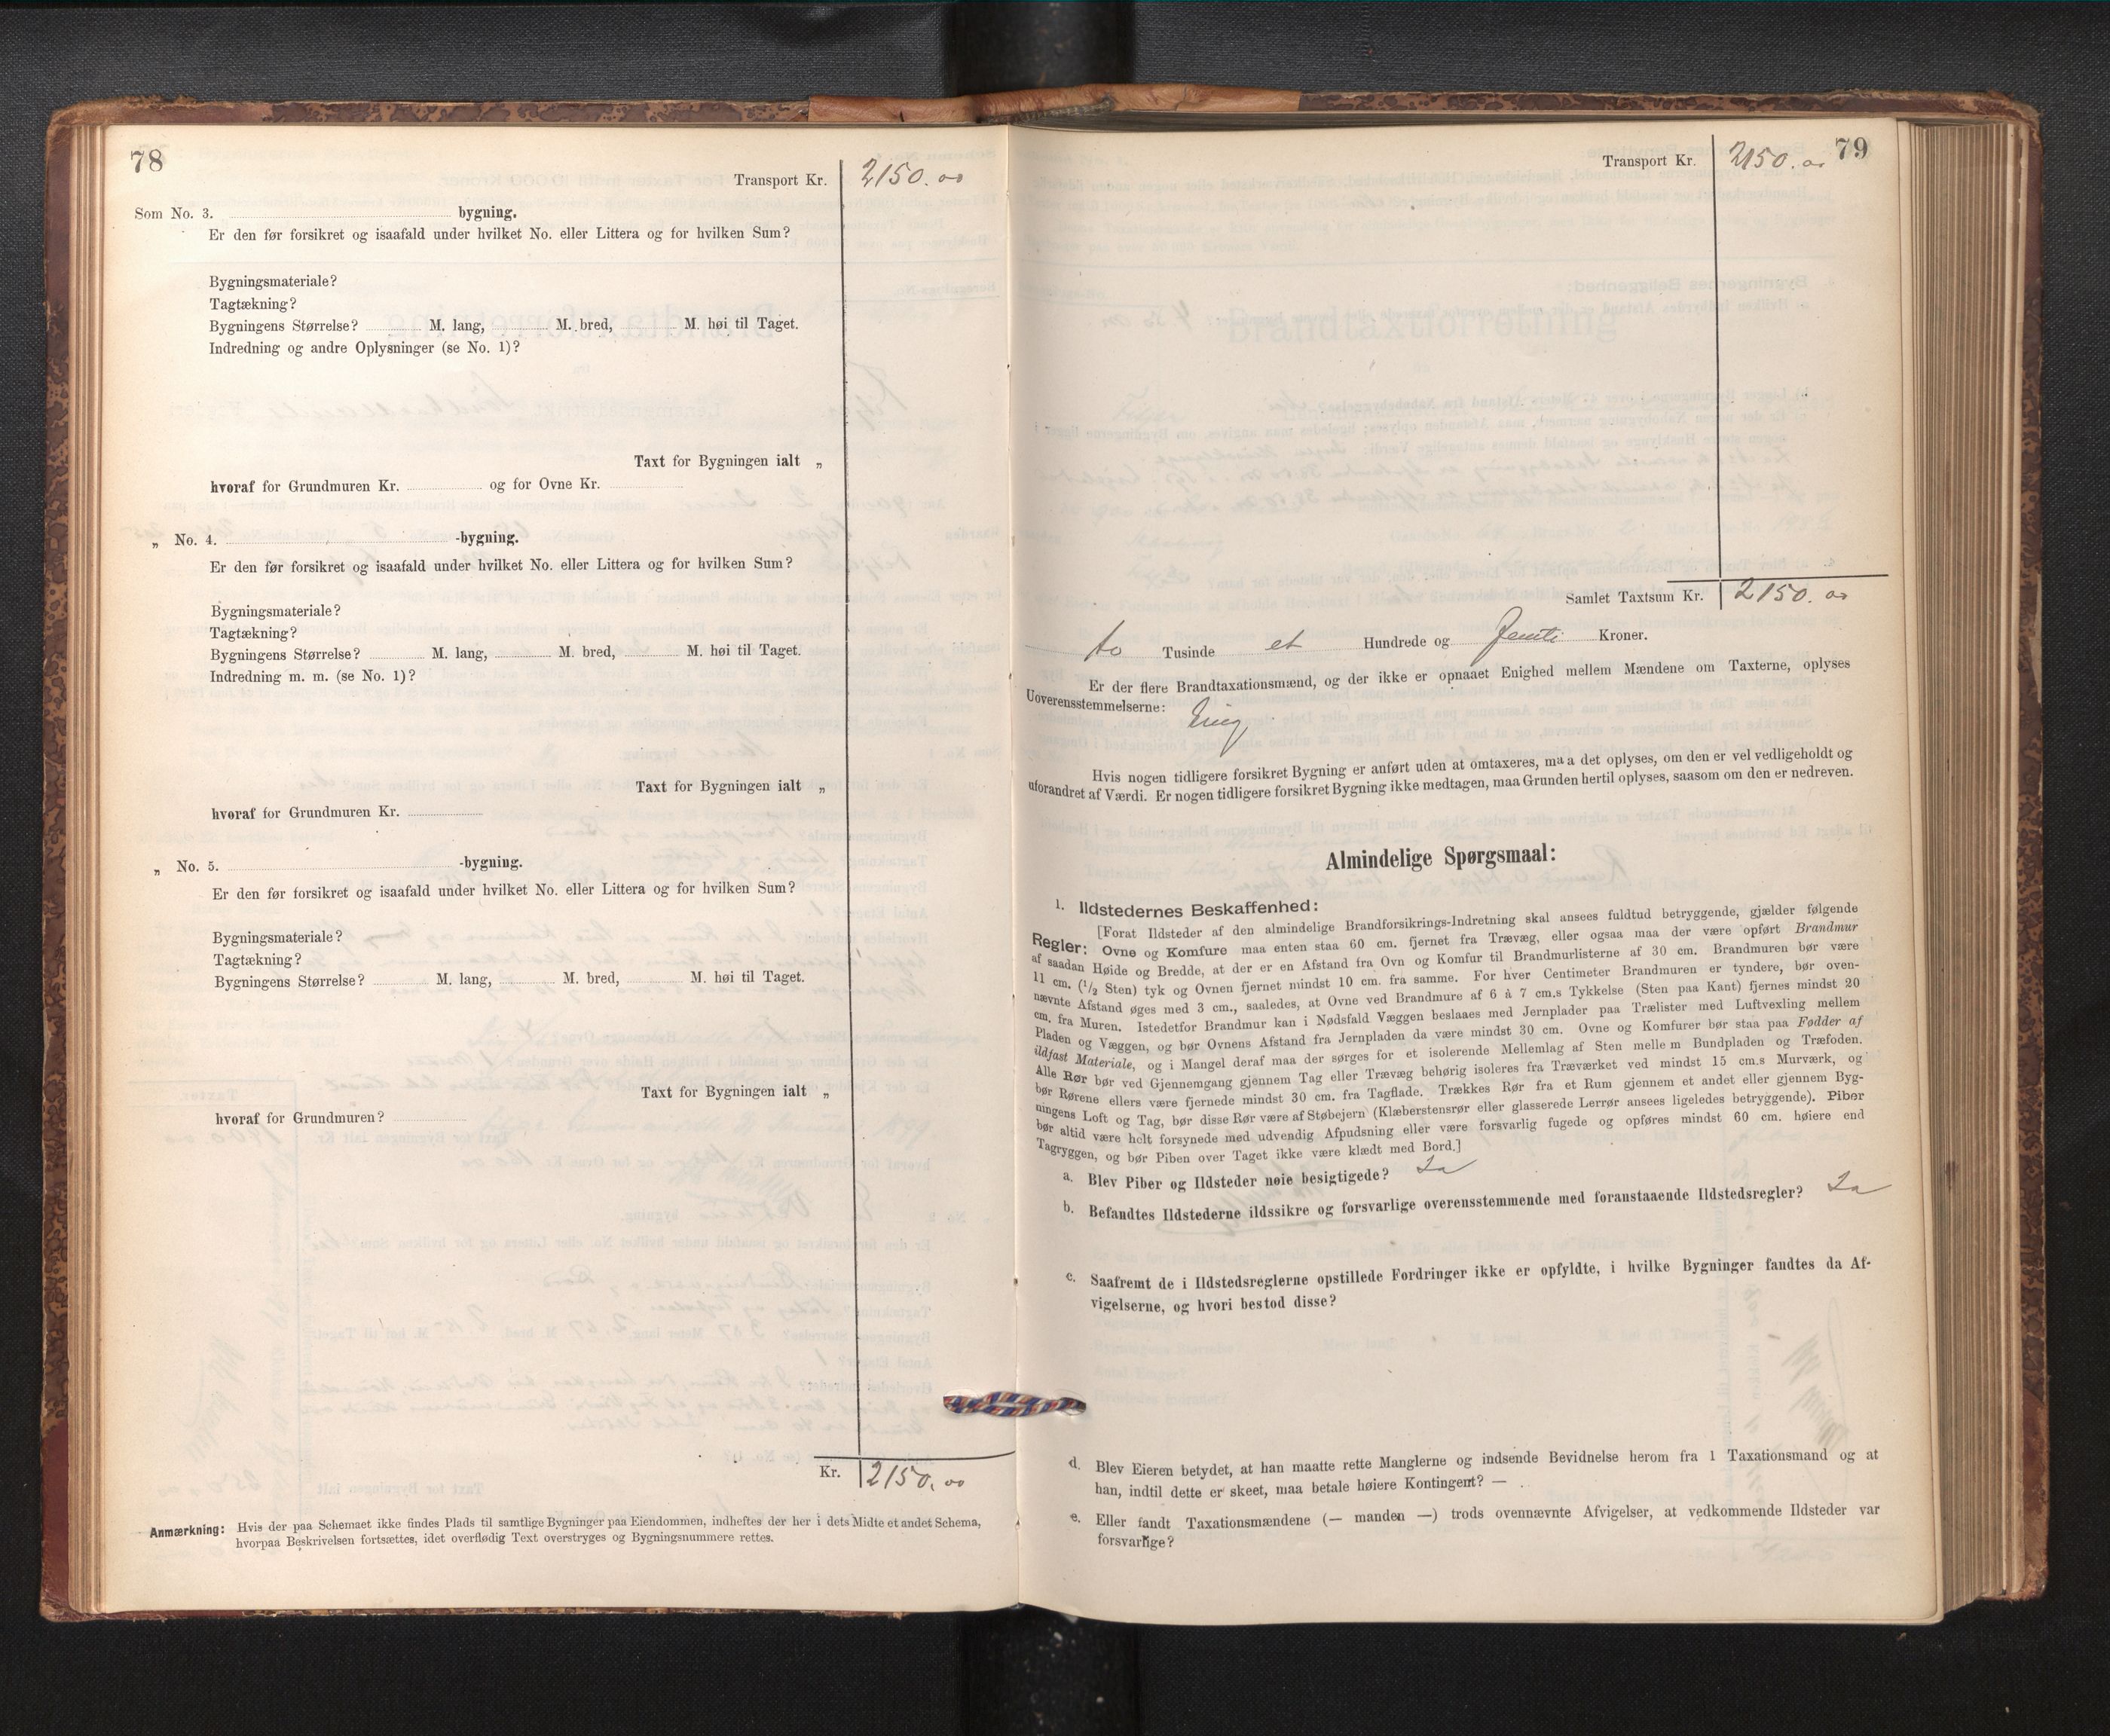 78
Transport Kr. 2150.00
Som No. 3. bygning.
Er den før forsikret og isaafald under hvilket No. eller Littera og for hvilken Sum?
Bygningsmateriale?
Tagtækning?
Bygningens Størrelse? M. lang, M. bred, M. høi til Taget.
Indredning og andre Oplysninger (se No. 1)?
Taxt for Bygningen ialt „
hvoraf for Grundmuren Kr. og for Ovne Kr.
„ No. 4. -bygning.
Er den før forsikret og isaafald under hvilket No. eller Littera og for hvilken Sum?
Bygningsmateriale?
Tagtækning?
Bygningens Størrelse? M. lang, M. bred, M. høi til Taget.
Indredning m. m. (se No. 1)?
Taxt for Bygningen ialt „
hvoraf for Grundmuren Kr.
„ No. 5. -bygning.
Er den før forsikret og isaafald under hvilket No. eller Littera og for hvilken Sum?
Bygningsmateriale?
Tagtækning?
Bygningens Størrelse? M. lang, M. bred, M. høi til Taget.
Taxt for Bygningen ialt „
hvoraf for Grundmuren?
Kr. 2150.00
Anmærkning: Hvis der paa Schemaet ikke findes Plads til samtlige Bygninger paa Eiendommen, indheftes der her i dets Midte et andet Schema,
hvorpaa Beskrivelsen fortsættes, idet overflødig Text overstryges og Bygningsnummere rettes.
79
Transport Kr. 2150.00
Samlet Taxtsum Kr. 2150.00
to Tusinde et Hundrede og femti Kroner.
Er der flere Brandtaxationsmænd, og der ikke er opnaaet Enighed mellem Mændene om Taxterne, oplyses
Uoverensstemmelserne: Enig
Hvis nogen tidligere forsikret Bygning er anført uden at omtaxeres, maa det oplyses, om den er vel vedligeholdt og
uforandret af Værdi. Er nogen tidligere forsikret Bygning ikke medtagen, maa Grunden hertil oplyses, saasom om den er nedreven.
Almindelige Spørgsmaal:
1. Ildstedernes Beskaffenhed:
[Forat Ildsteder af den almindelige Brandforsikrings-Indretning skal ansees fuldtud betryggende, gjælder følgende
Regler: Ovne og Komfure maa enten staa 60 cm. fjernet fra Trævæg, eller ogsaa maa der være opført Brandmur
af saadan Høide og Bredde, at der er en Afstand fra Ovn og Komfur til Brandmurlisterne af 30 cm. Brandmuren bør være
11 cm. (1/2 Sten) tyk og Ovnen fjernet mindst 10 cm. fra samme. For hver Centimeter Brandmuren er tyndere, bør oven-
nævnte Afstand øges med 3 cm., saaledes, at Ovne ved Brandmure af 6 à 7 cm.s Tykkelse (Sten paa Kant) fjernes mindst 20
cm. fra Muren. Istedetfor Brandmur kan i Nødsfald Væggen beslaaes med Jernplader paa Trælister med Luftvexling mellem
Pladen og Væggen, og bør Ovnens Afstand fra Jernpladen da være mindst 30 cm. Ovne og Komfurer bør staa paa Fødder af
ildfast Materiale, og i Mangel deraf maa der sørges for et isolerende Mellemlag af Sten mellem Bundpladen og Træfoden.
Alle Rør bør ved Gjennemgang gjennem Tag eller Trævæg behørig isoleres fra Træværket ved mindst 15 cm.s Murværk, og
bør Rørene ellers være fjernede mindst 30 cm. fra Tagflade. Trækkes Rør fra et Rum gjennem et andet eller gjennem Byg-
ningens Loft og Tag, bør disse Rør være af Støbejern (Klæberstensrør eller glasserede Lerrør ansees ligeledes betryggende). Piber
bør altid være helt forsynede med udvendig Afpudsning eller være forsvarlig fugede og opføres mindst 60 cm. høiere end
Tagryggen, og bør Piben over Taget ikke være klædt med Bord.]
a. Blev Piber og Ildsteder nøie besigtigede? Ja
b. Befandtes Ildstederne ildssikre og forsvarlige overensstemmende med foranstaaende Ildstedsregler? Ja
c. Saafremt de i Ildstedsreglerne opstillede Fordringer ikke er opfyldte, i hvilke Bygninger fandtes da Af-
vigelserne, og hvori bestod disse?
d. Blev Eieren betydet, at han maatte rette Manglerne og indsende Bevidnelse herom fra 1 Taxationsmand og at
han, indtil dette er skeet, maa betale høiere Kontingent? —
e. Eller fandt Taxationsmændene (— manden —) trods ovennævnte Afvigelser, at vedkommende Ildsteder var
forsvarlige?